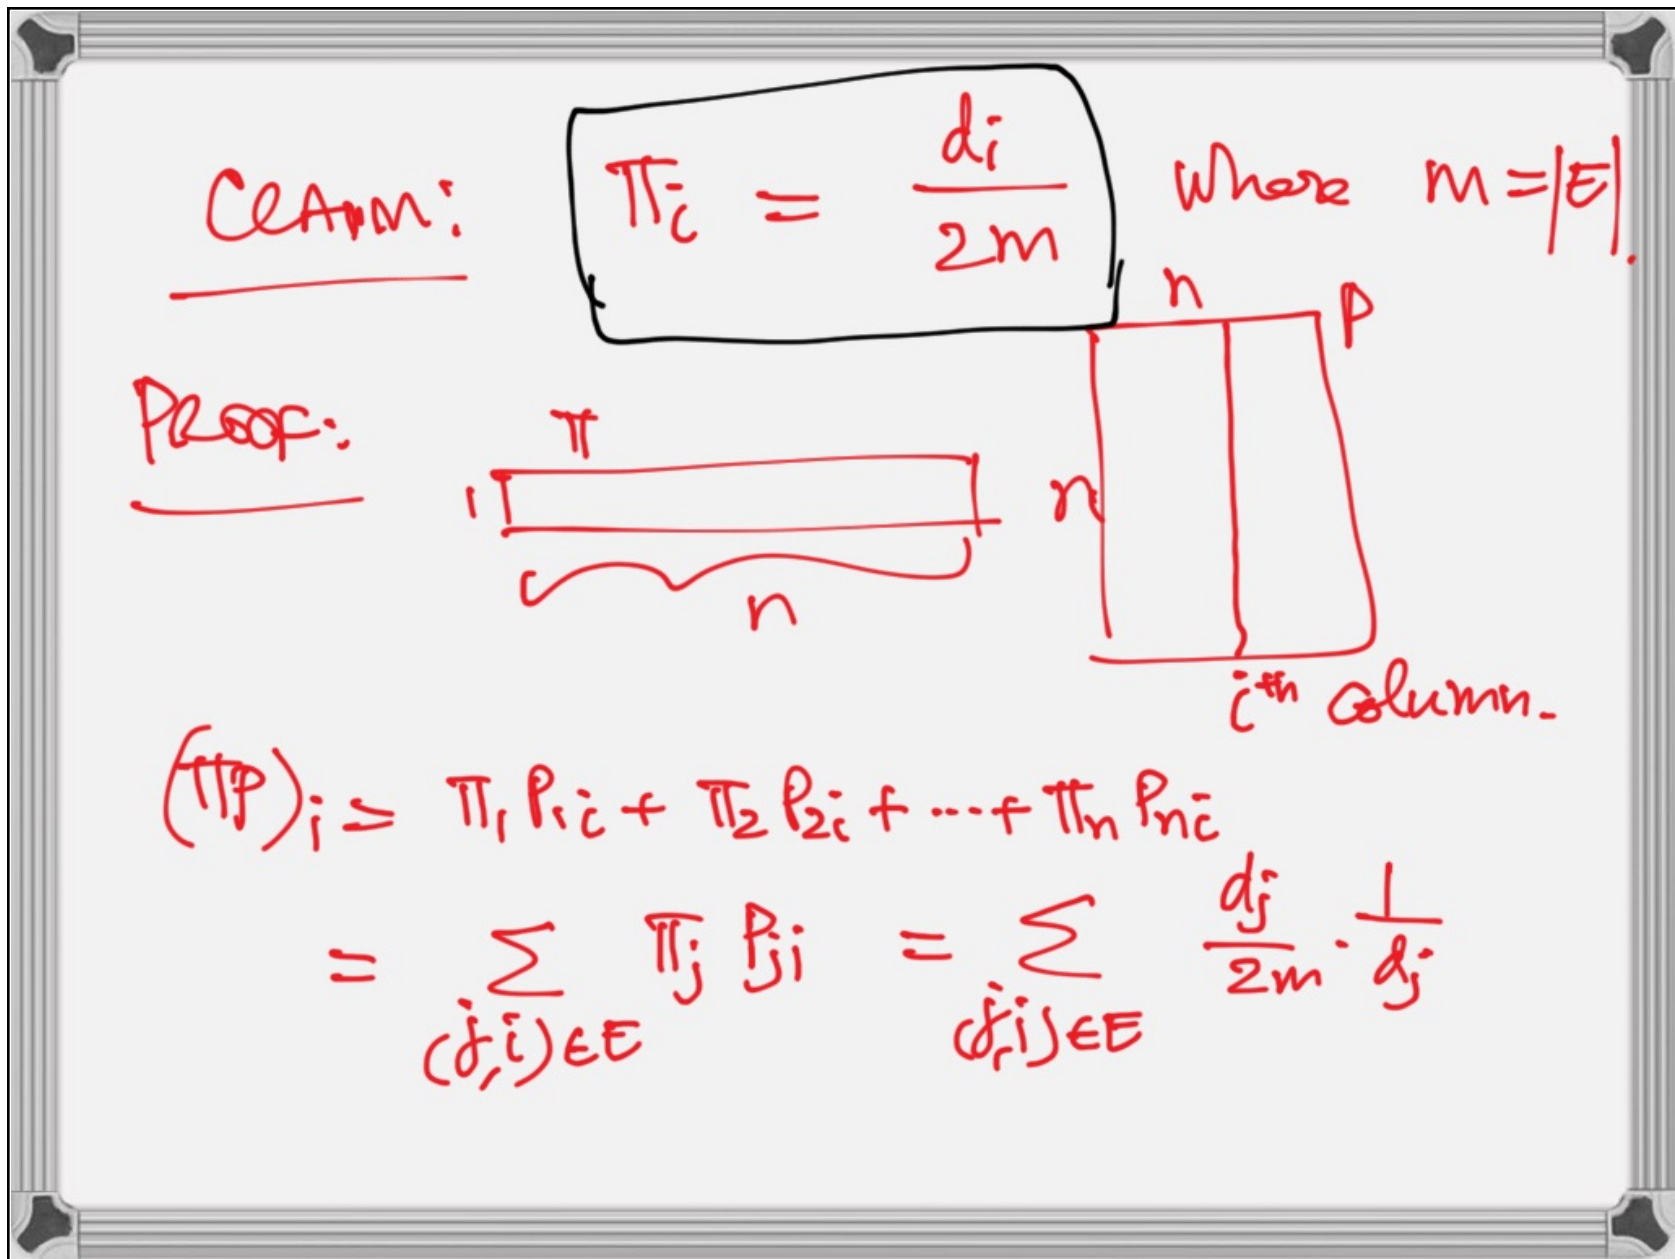 CLAIM: πi = di / 2m where m = |E|.
n P
PROOF: π
1 n
n
ith column.
(πP)i = π1 P1i + π2 P2i + ... + πn Pni
= Σ(j,i)∈E πj Pji = Σ(j,i)∈E dj/2m · 1/dj